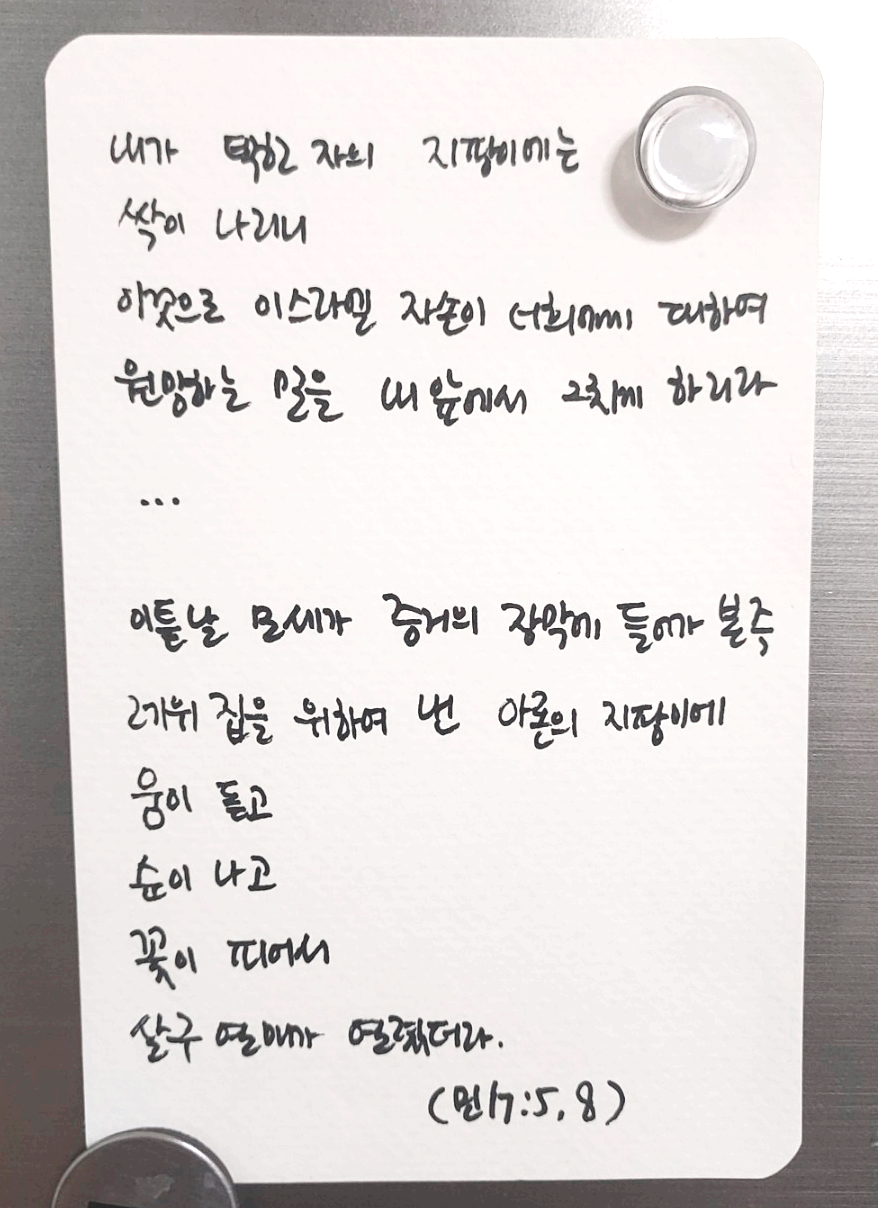 내가 택한 자의 지팡이에는
싹이 나리니
이것으로 이스라엘 자손이 너희에게 대하여
원망하는 말을 내 앞에서 그치게 하리라
...
이튿날 모세가 증거의 장막에 들어가 본즉
레위 집을 위하여 낸 아론의 지팡이에
움이 돋고
순이 나고
꽃이 피어서
살구 열매가 열렸더라.
(민17:5,8)